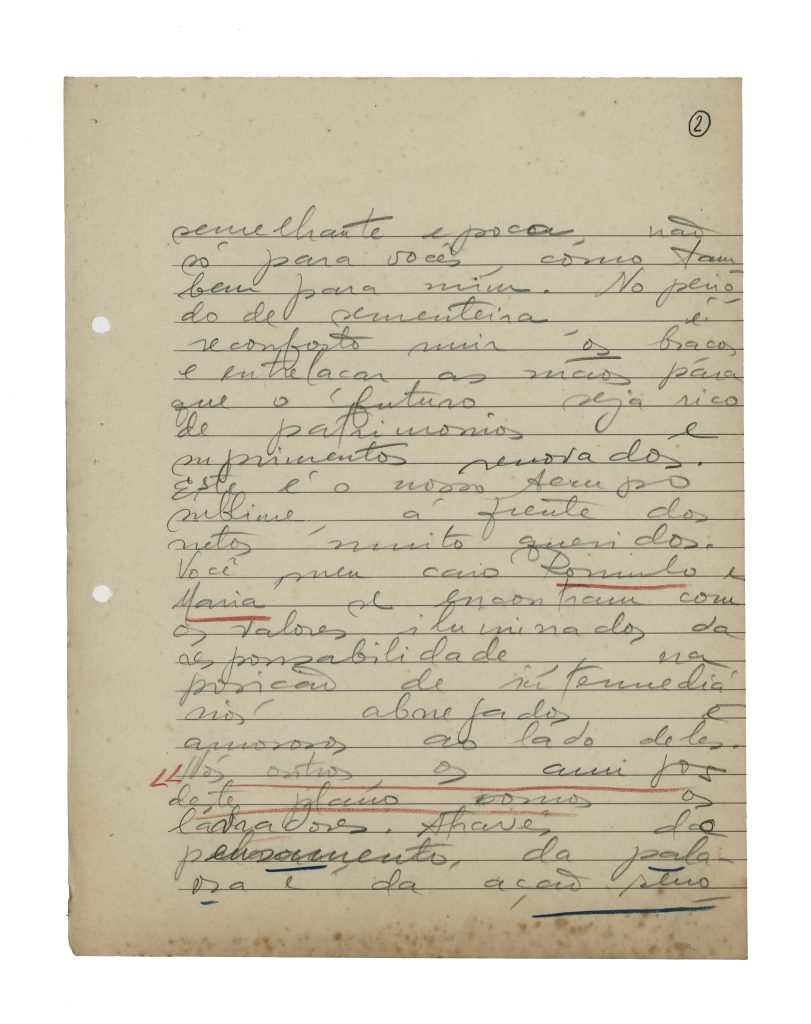 2
semelhante epoca, não
só para vocês, cómo tam
bem para mim. No perió
do de sementeira é
reconforto unir os braços
e entrelaçar as mãos pára
que o futuro seja rico
de patrimonios e
suprimentos renovados.
Este é o nosso
sublime á frente dos
netos muito queridos.
Você, meu caro Romulo e
Maria se encontram com
os valores iluminados da
responsabilidade, na
posição de intermediá
rios abnegados e
amorosos ao lado deles.
"Nós outros, os amigos
deste plano somos os
lavradores. Através do
pensamento, da pala-
vra e da ação